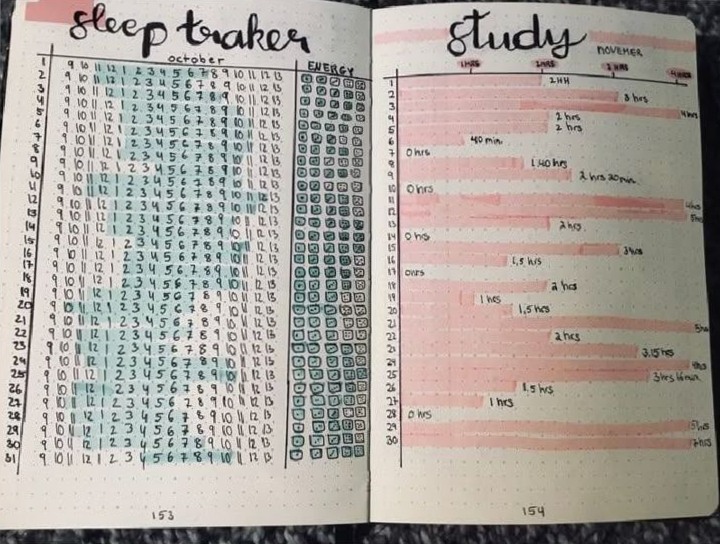 sleep traker
october
ENERGY
1 9 10 11 12 1 2 3 4 5 6 7 8 9 10 11 12 13
2 9 10 11 12 1 2 3 4 5 6 7 8 9 10 11 12 13
3 9 10 11 12 1 2 3 4 5 6 7 8 9 10 11 12 13
4 9 10 11 12 1 2 3 4 5 6 7 8 9 10 11 12 13
5 9 10 11 12 1 2 3 4 5 6 7 8 9 10 11 12 13
6 9 10 11 12 1 2 3 4 5 6 7 8 9 10 11 12 13
7 9 10 11 12 1 2 3 4 5 6 7 8 9 10 11 12 13
8 9 10 11 12 1 2 3 4 5 6 7 8 9 10 11 12 13
9 9 10 11 12 1 2 3 4 5 6 7 8 9 10 11 12 13
10 9 10 11 12 1 2 3 4 5 6 7 8 9 10 11 12 13
11 9 10 11 12 1 2 3 4 5 6 7 8 9 10 11 12 13
12 9 10 11 12 1 2 3 4 5 6 7 8 9 10 11 12 13
13 9 10 11 12 1 2 3 4 5 6 7 8 9 10 11 12 13
14 9 10 11 12 1 2 3 4 5 6 7 8 9 10 11 12 13
15 9 10 11 12 1 2 3 4 5 6 7 8 9 10 11 12 13
16 9 10 11 12 1 2 3 4 5 6 7 8 9 10 11 12 13
17 9 10 11 12 1 2 3 4 5 6 7 8 9 10 11 12 13
18 9 10 11 12 1 2 3 4 5 6 7 8 9 10 11 12 13
19 9 10 11 12 1 2 3 4 5 6 7 8 9 10 11 12 13
20 9 10 11 12 1 2 3 4 5 6 7 8 9 10 11 12 13
21 9 10 11 12 1 2 3 4 5 6 7 8 9 10 11 12 13
22 9 10 11 12 1 2 3 4 5 6 7 8 9 10 11 12 13
23 9 10 11 12 1 2 3 4 5 6 7 8 9 10 11 12 13
24 9 10 11 12 1 2 3 4 5 6 7 8 9 10 11 12 13
25 9 10 11 12 1 2 3 4 5 6 7 8 9 10 11 12 13
26 9 10 11 12 1 2 3 4 5 6 7 8 9 10 11 12 13
27 9 10 11 12 1 2 3 4 5 6 7 8 9 10 11 12 13
28 9 10 11 12 1 2 3 4 5 6 7 8 9 10 11 12 13
29 9 10 11 12 1 2 3 4 5 6 7 8 9 10 11 12 13
30 9 10 11 12 1 2 3 4 5 6 7 8 9 10 11 12 13
31 9 10 11 12 1 2 3 4 5 6 7 8 9 10 11 12 13
153
study
NOVEMER
1 HRS 2 HRS 3 HRS 4 HRS
1 2HH
2 3 hrs
3 4hrs
4 2 hrs
5 2 hrs
6 40 min
7 0 hrs
8 1.40 hrs
9 2 hrs 20 min
10 0 hrs
11 4hrs
12 5hrs
13 2 hrs
14 0 hs
15 3hrs
16 1,5 hrs
17 0hrs
18 2 hrs
19 1 hrs
20 1,5 hrs
21 5hrs
22 2 hrs
23 3.15 hrs
24
25 3 hrs
26 1.5 hrs
27 1 hrs
28 0 hrs
29 5hrs
30 7hrs
154